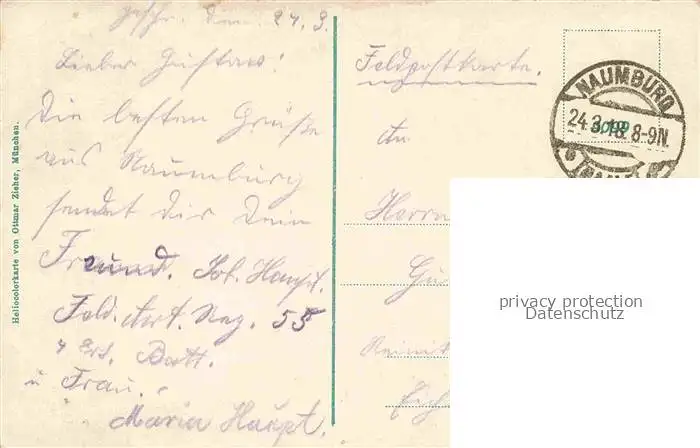 geschr. den 24. 3.
Lieber Gustav!
Die besten Grüße
aus Naumburg
sendet dir Dein
Freund. Joh. Haupt.
Feld. Art. Reg. 55
Ers. Batt.
u Frau.
Maria Haupt.
Heliocolorkarte von Ottmar Zieher, München.
Feldpostkarte.
An
Herrn
NAUMBURG
24.3.18. 8-9N.
privacy protection
Datenschutz